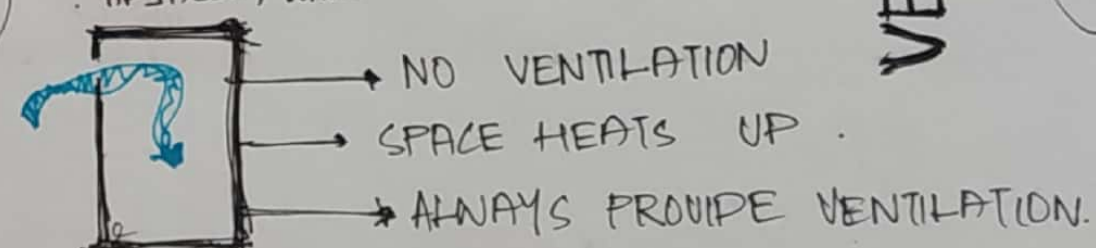 VE
→ NO VENTILATION
→ SPACE HEATS UP.
→ ALWAYS PROVIDE VENTILATION.